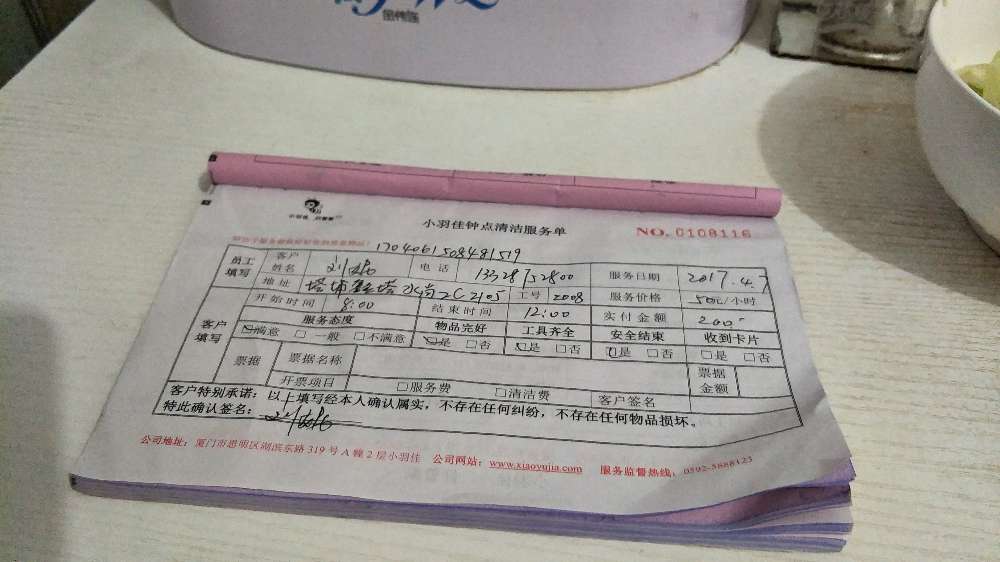 小羽佳钟点清洁服务单
NO.0108116
1704061508481519
员工填写 客户姓名 电话 13328752800 服务日期 2017.4.7
地址 2C2105 工号 2008 服务价格 50元/小时
开始时间 8:00 结束时间 12:00 实付金额 200
客户填写 服务态度 物品完好 工具齐全 安全结束 收到卡片
☑满意 □一般 □不满意 ☑是 □否 ☑是 □否 ☑是 □否 □是 □否
票据 票据名称 票据金额
开票项目 □服务费 □清洁费 客户签名
客户特别承诺：以上填写经本人确认属实，不存在任何纠纷，不存在任何物品损坏。
特此确认签名：
公司地址：厦门市思明区湖滨东路319号A幢2层小羽佳 公司网站：www.xiaoyujia.com 服务监督热线：0592-5888123